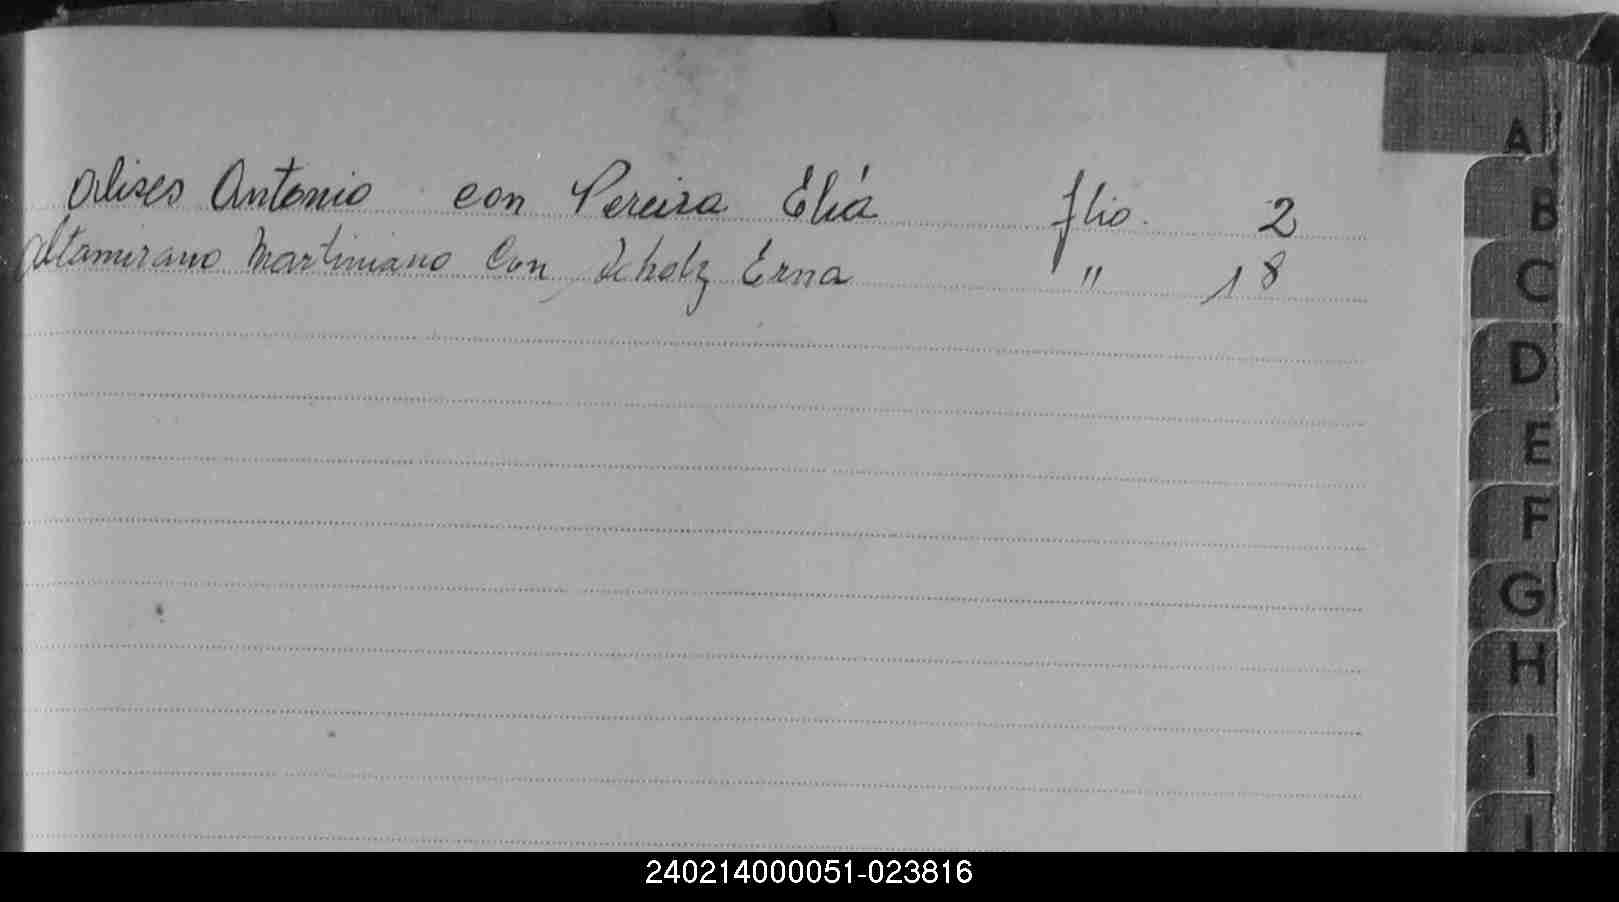 Alises Antonio con Pereira Eliá flio. 2
Altamirano Martiniano Con Scholz Erna " 18
A
B
C
D
E
F
G
H
I
240214000051-023816